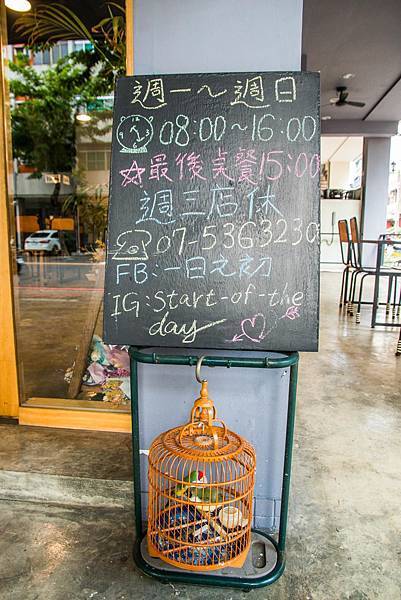 週一～週日
08:00～16:00
最後桌餐15:00
週三店休
07-5363230
FB:一日之初
IG:Start-of-the
day